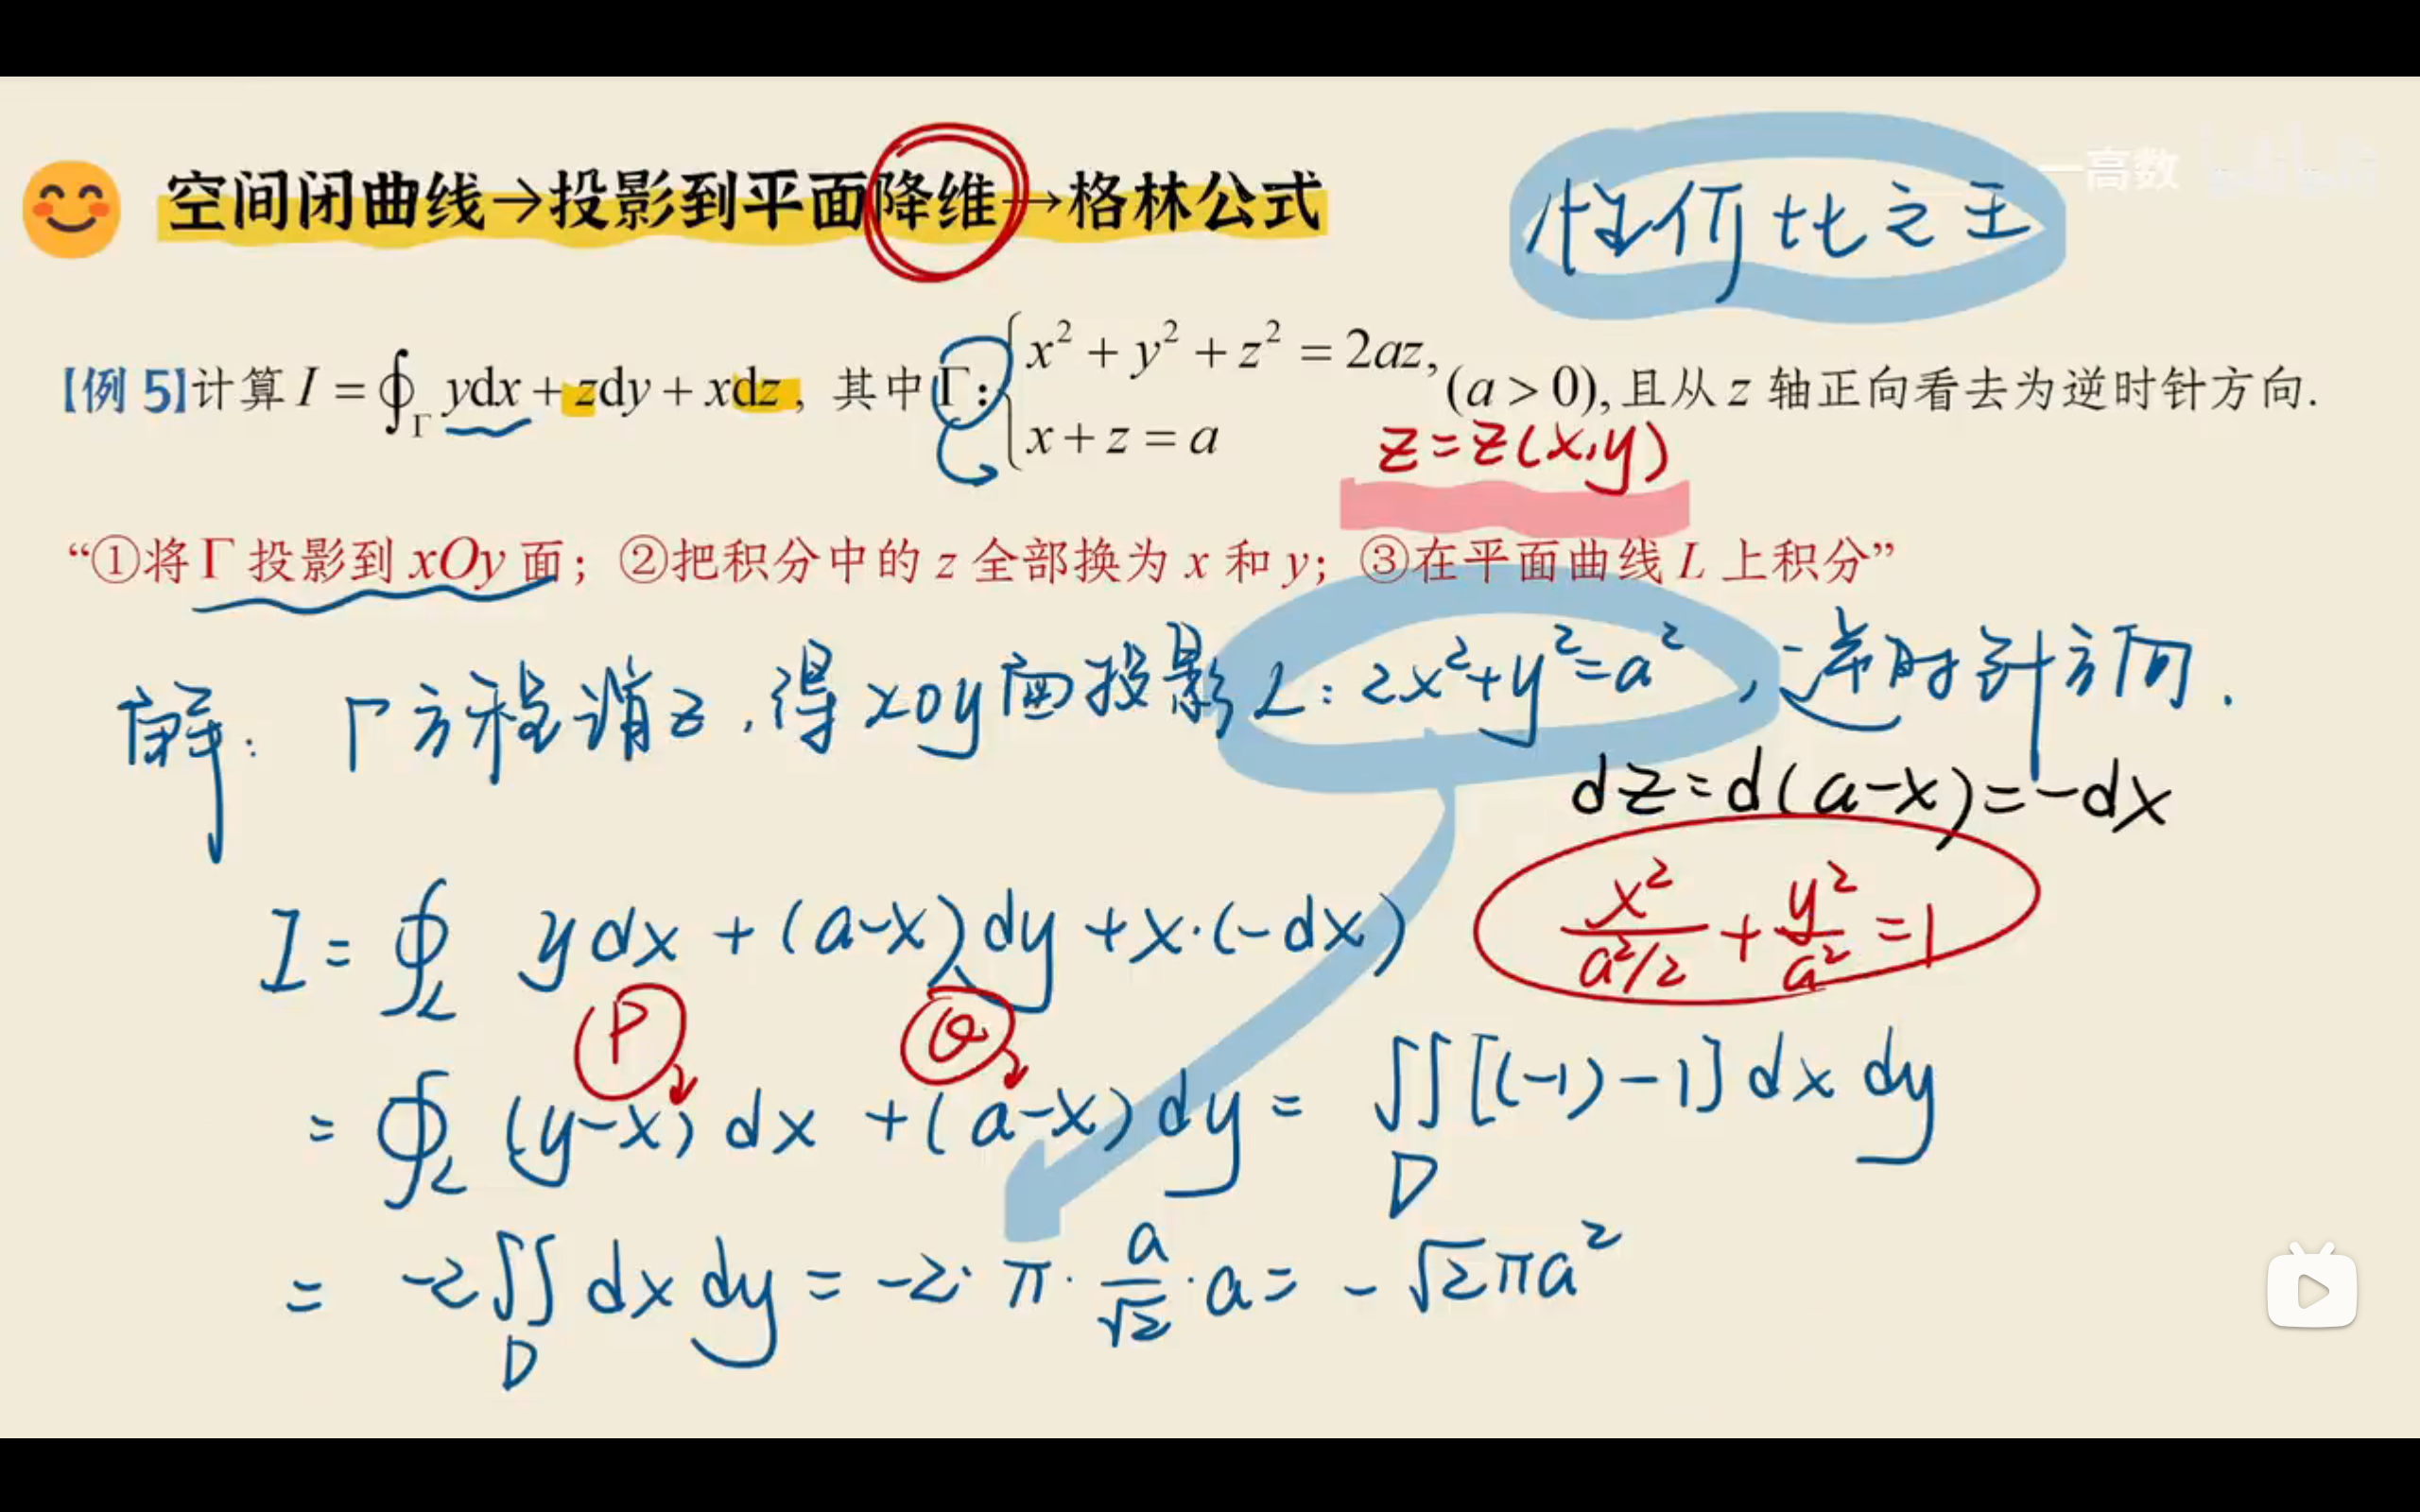 空间闭曲线→投影到平面降维→格林公式
性价比之王
一高数
【例 5】计算 I = ∮_Γ ydx + zdy + xdz, 其中 Γ: { x² + y² + z² = 2az, x + z = a (a > 0), 且从 z 轴正向看去为逆时针方向.
z = z(x,y)
“①将 Γ 投影到 xOy 面；②把积分中的 z 全部换为 x 和 y；③在平面曲线 L 上积分”
解: Γ方程消z, 得xoy面投影 L: 2x²+y²=a², 逆时针方向.
dz = d(a-x) = -dx
I = ∮_L ydx + (a-x)dy + x·(-dx)
x²/(a²/2) + y²/a² = 1
P Q
= ∮_L (y-x)dx + (a-x)dy = ∬_D [(-1)-1]dxdy
= -2∬_D dxdy = -2·π·a/√2·a = -√2πa²